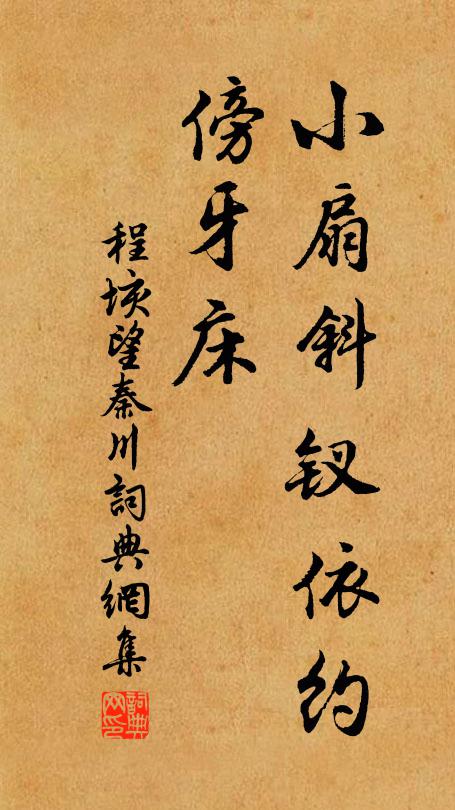 小扇斜钗依约
傍牙床
程垓望秦川詞典網集
詞典网印